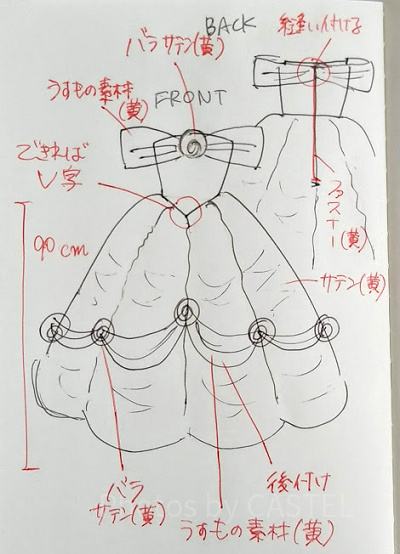 BACK
縫い付ける
バラ サテン(黄)
うすもの素材
(黄)
FRONT
できれば
V字
90cm
ファスナー(黄)
サテン(黄)
バラ
サテン(黄)
後付け
うすもの素材(黄)
Photos by CASTEL